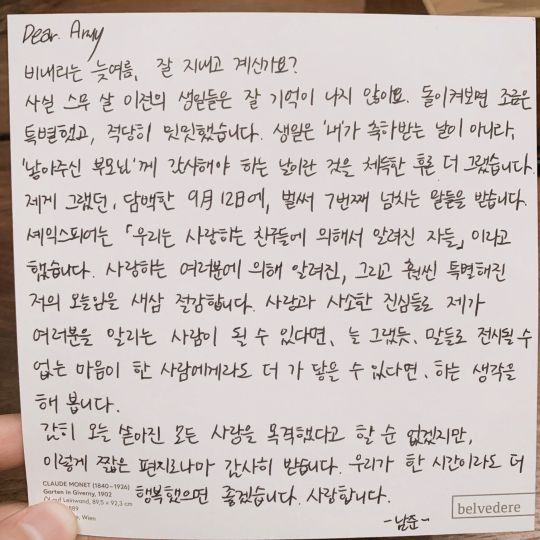 Dear. Army
비내리는 늦여름, 잘 지내고 계신가요?
사실 스무 살 이전의 생일들은 잘 기억이 나지 않아요. 돌이켜보면 조금은
특별했고, 적당히 밋밋했습니다. 생일은 '내'가 축하받는 날이 아니라,
'낳아주신 부모님'께 감사해야 하는 날이란 것을 체득한 후론 더 그랬습니다.
제게 그랬던, 담백한 9月 12日에, 벌써 7번째 넘치는 말들을 받습니다.
셰익스피어는 「우리는 사랑하는 친구들에 의해서 알려진 자들」이라고
했습니다. 사랑하는 여러분에 의해 알려진, 그리고 훨씬 특별해진
저의 오늘임을 새삼 절감합니다. 사랑과 사소한 진심들로 제가
여러분을 알리는 사람이 될 수 있다면, 늘 그랬듯, 말들로 전시될 수
없는 마음이 한 사람에게라도 더 가 닿을 수 있다면, 하는 생각을
해 봅니다.
감히 오늘 쏟아진 모든 사랑을 목격했다고 할 순 없겠지만,
이렇게 짧은 편지로나마 감사히 받습니다. 우리가 한 시간이라도 더
행복했으면 좋겠습니다. 사랑합니다.
-남준-
CLAUDE MONET (1840–1926)
Garten in Giverny, 1902
Öl auf Leinwand, 89,5 x 92,3 cm
889
Wien
belvedere